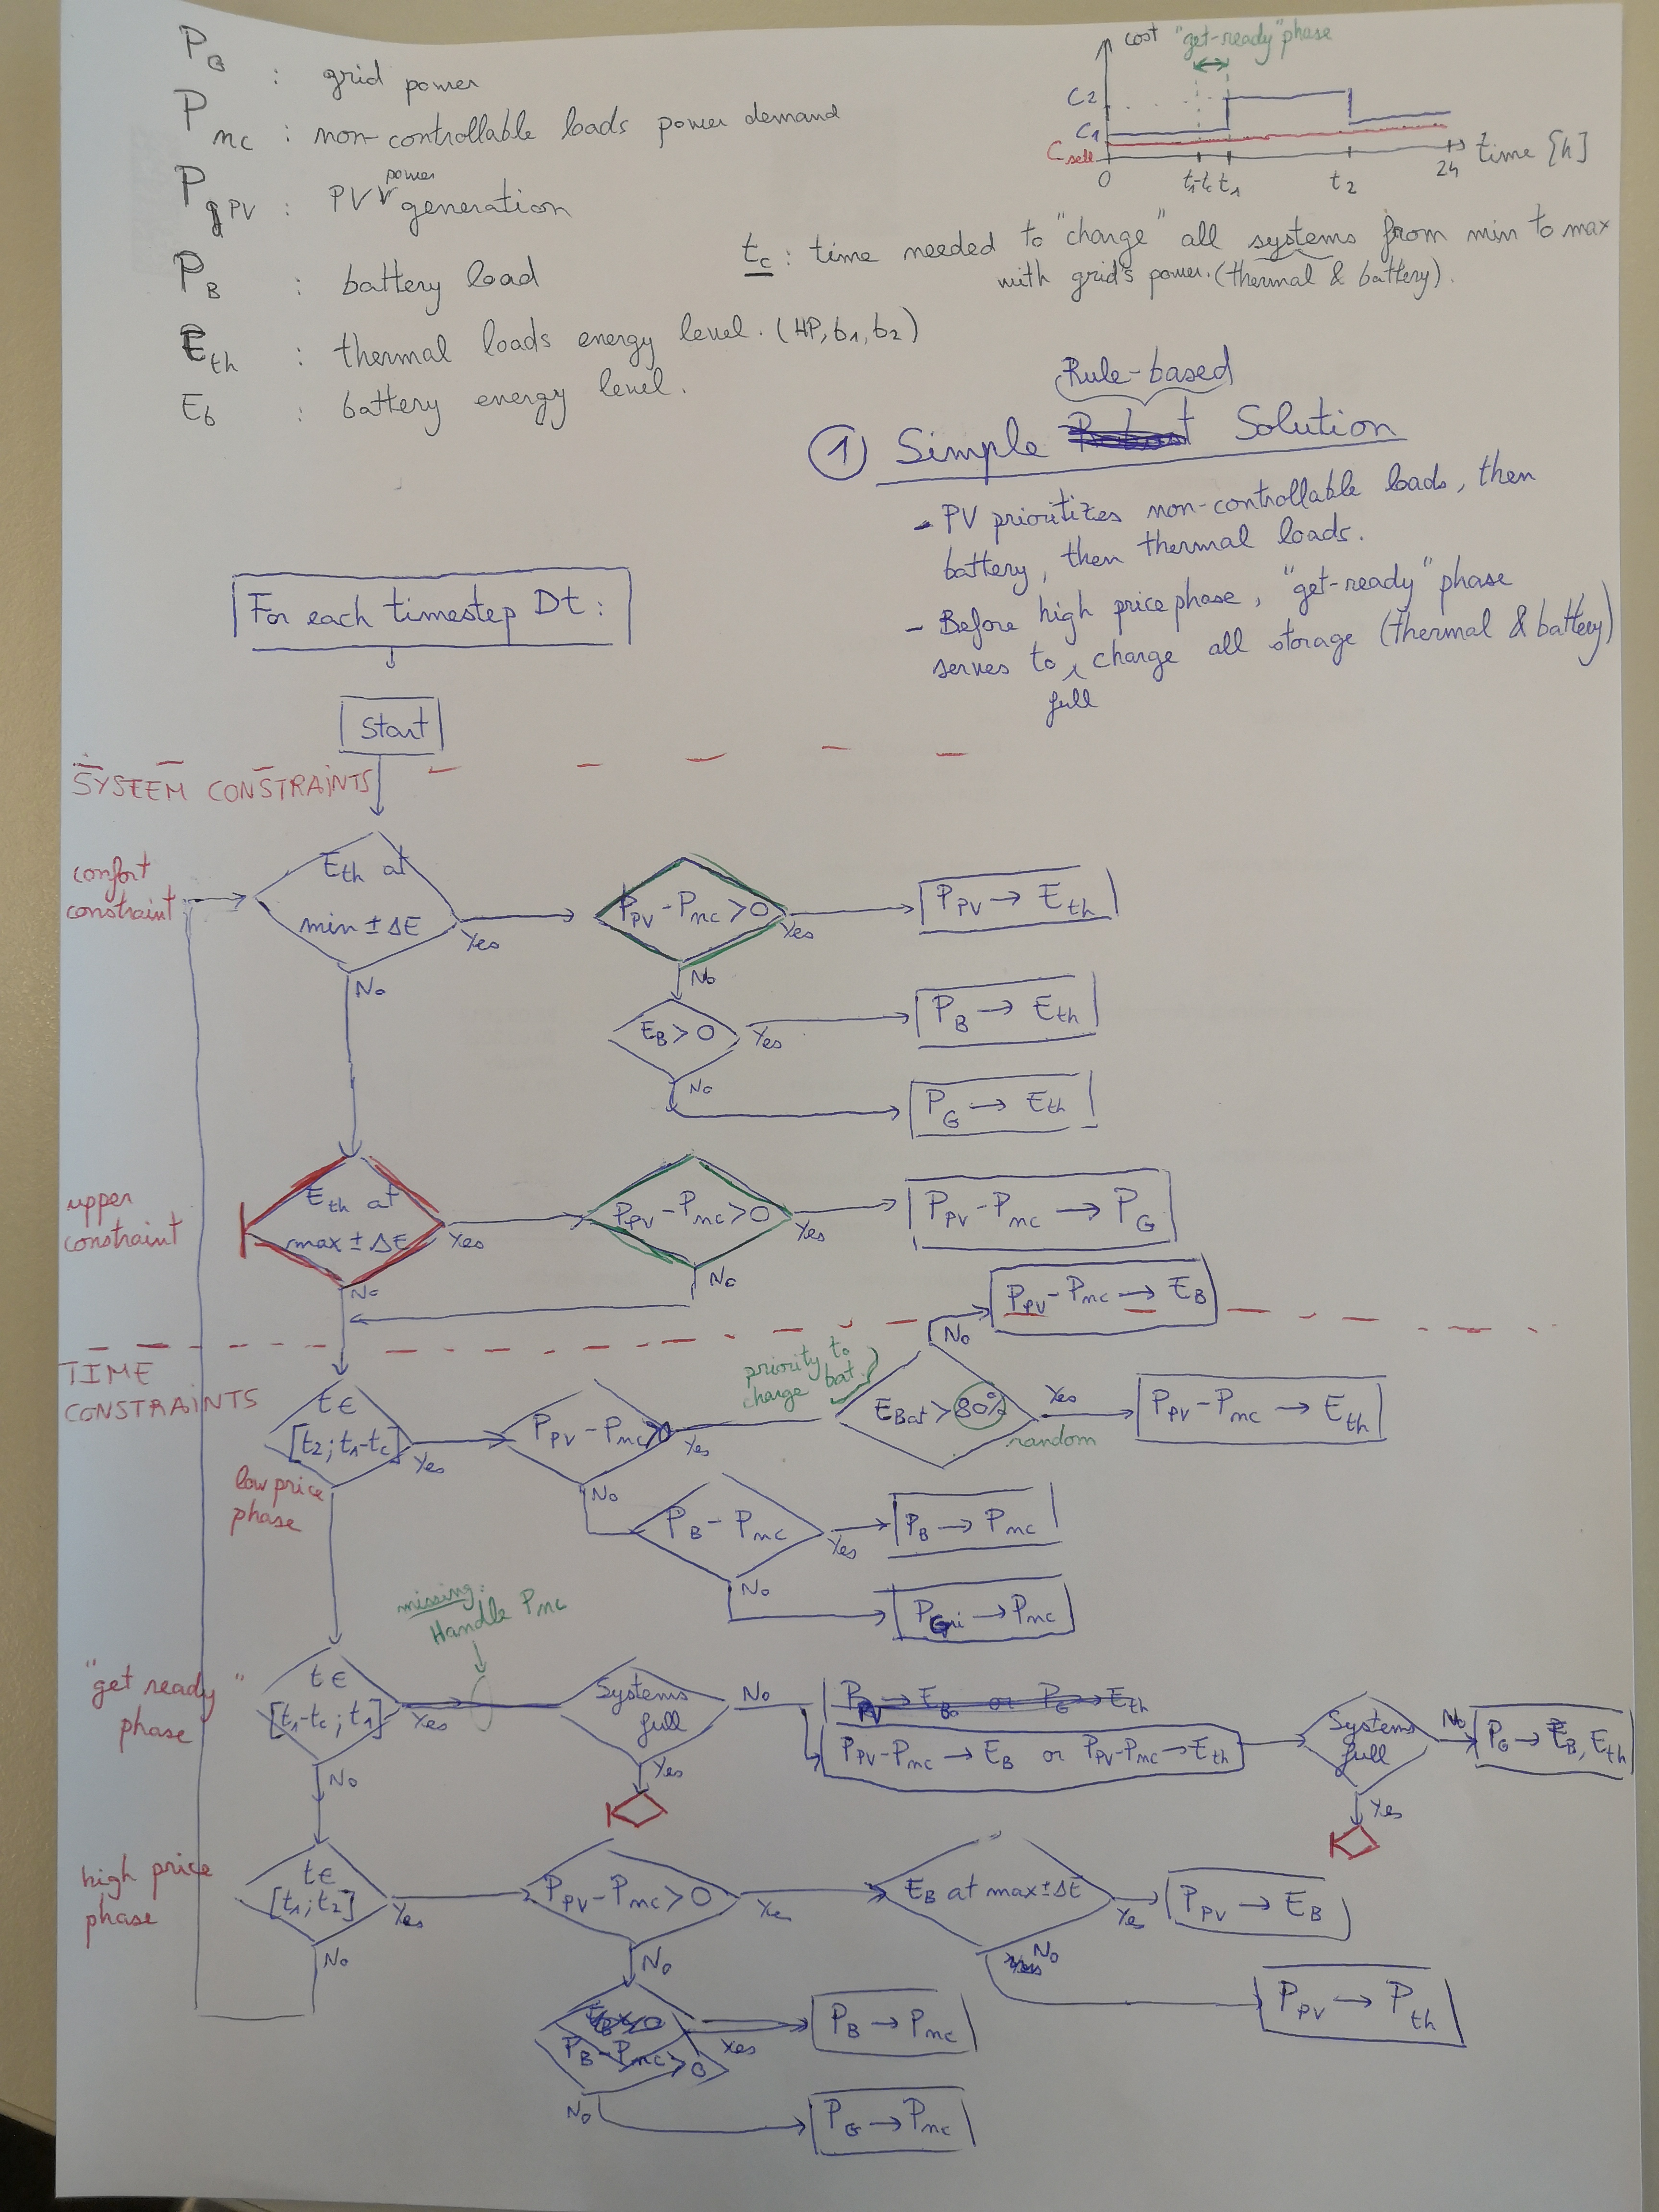 P_G : grid power
P_nc : non-controllable loads power demand
P_gPV : PV power generation
P_B : battery load
E_th : thermal loads energy level. (HP, b1, b2)
E_b : battery energy level.
cost "get-ready" phase
C2
C1
C_sell
0 t1-tc t1 t2 24 time [h]
tc : time needed to "charge" all systems from min to max
with grid's power. (thermal & battery).
Rule-based
① Simple Solution
- PV prioritizes non-controllable loads, then
battery, then thermal loads.
- Before high price phase, "get-ready" phase
serves to full charge all storage (thermal & battery)
For each timestep Dt :
Start
SYSTEM CONSTRAINTS
confort
constraint
E_th at
min ± ΔE
Yes
P_PV - P_nc > 0
Yes
P_PV → E_th
No
No
E_B > 0
Yes
P_B → E_th
No
P_G → E_th
upper
constraint
E_th at
max ± ΔE
Yes
P_PV - P_nc > 0
Yes
P_PV - P_nc → P_G
No
No
P_PV - P_nc → E_B
No
TIME
CONSTRAINTS
priority to
charge bat.
t ∈
[t2 ; t1-tc]
Yes
P_PV - P_nc > 0
Yes
E_Bat > 80%
random
Yes
P_PV - P_nc → E_th
low price
phase
No
P_B - P_nc
Yes
P_B → P_nc
No
P_Gri → P_nc
missing:
Handle P_nc
"get ready"
phase
t ∈
[t1-tc ; t1]
Yes
Systems
full
No
P_PV → E_B or P_G → E_th
P_PV - P_nc → E_B or P_PV - P_nc → E_th
Systems
full
No
P_G → E_B, E_th
Yes
Yes
No
high price
phase
t ∈
[t1 ; t2]
Yes
P_PV - P_nc > 0
Yes
E_B at max ± ΔE
Yes
P_PV → E_B
No
No
No
P_PV → P_th
P_B - P_nc > 0
Yes
P_B → P_nc
No
P_G → P_nc